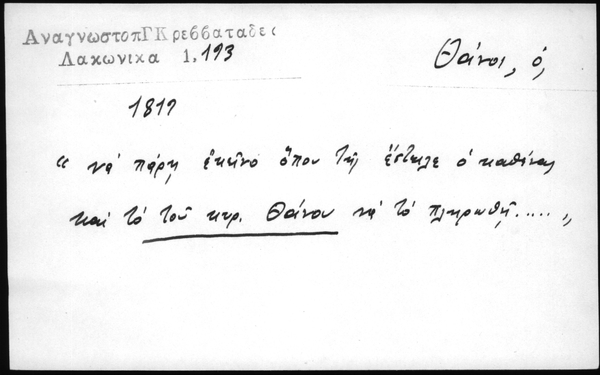 ΑναγνωστοπΓΚρεββαταδες
Λακωνικα 1, 193
Θάνος, ὁ,
1819
“ νά πάρῃ ἐκεῖνο ὅπου τῆς ἔστειλε ὁ καθένας
καί τό τοῦ κυρ. Θάνου νά τό πληρωθῇ..... „